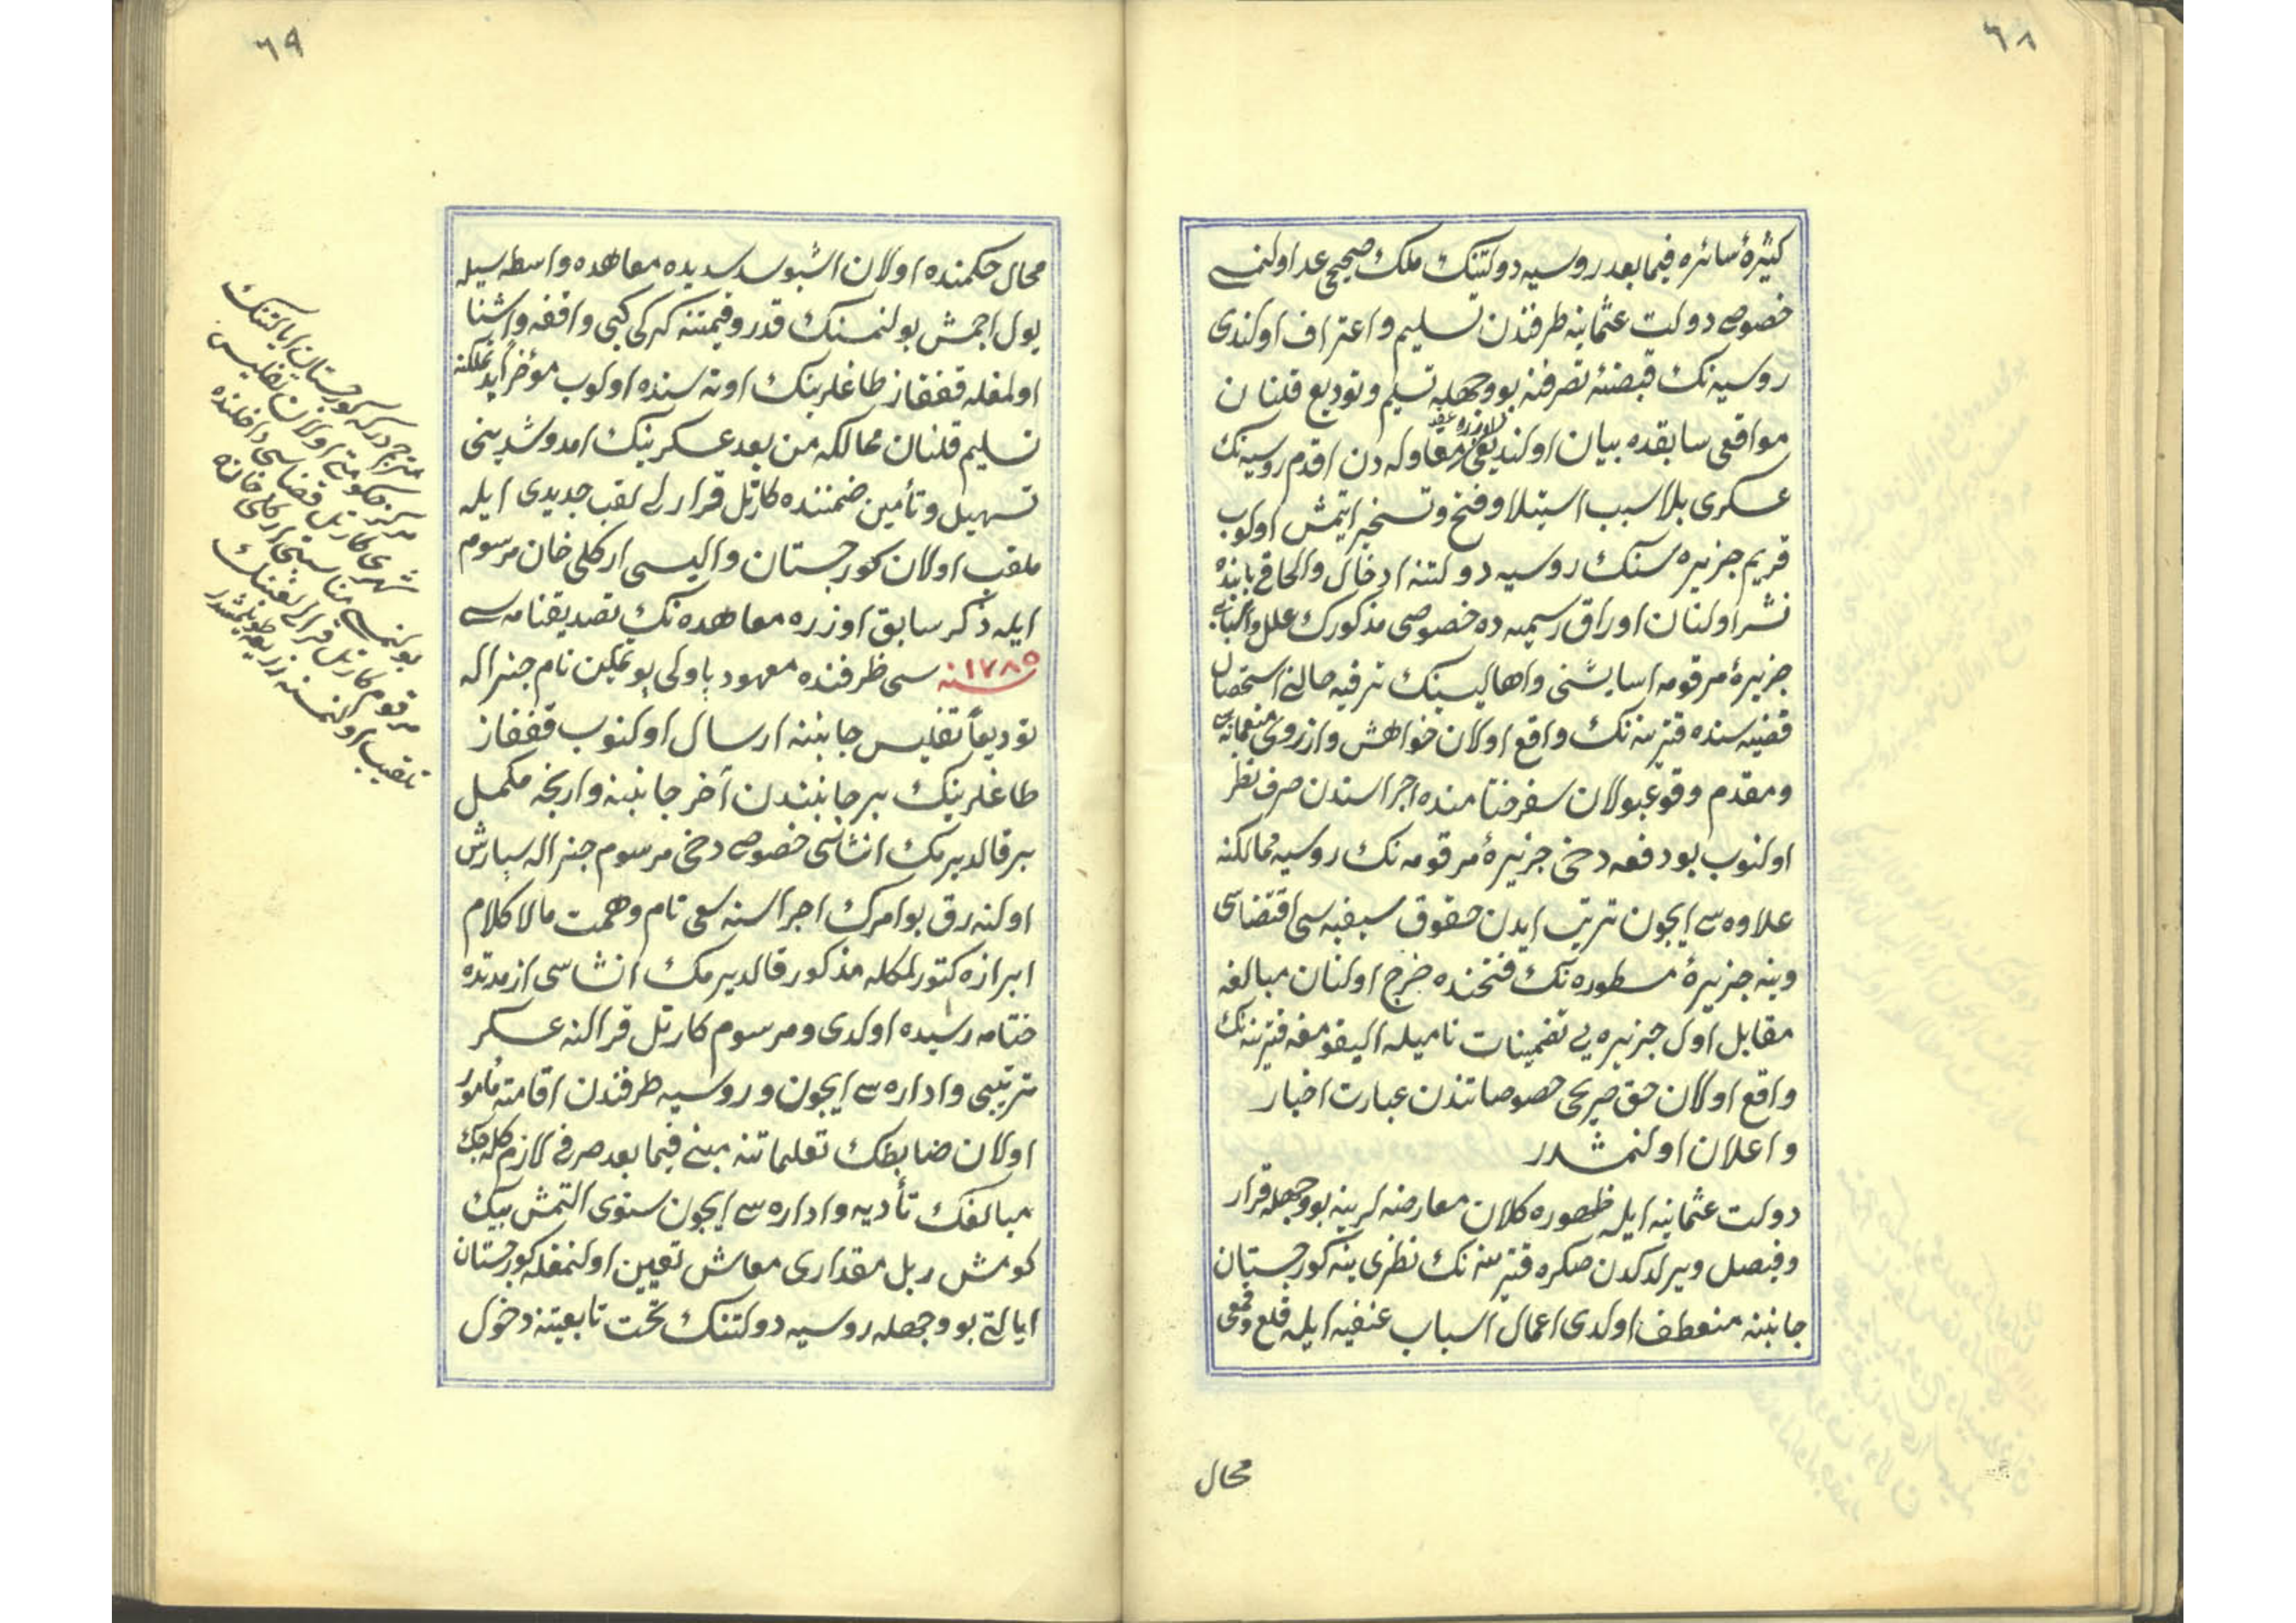 ٦٨
كثیرۀ سائره فیمابعد روسیه دولتنك ملك صحیحی عد اولنمسی
خصوصی دولت عثمانیه طرفندن تسلیم و اعتراف اولندی
روسیه نك قبضۀ تصرفنه بووجهله تسلیم و تودیع قلنان
مواقعی سابقده بیان اولندیغی اوزره عقد مقاوله دن اقدم روسیه نك
عسكری بلا سبب استیلا و فتح و تسخیر ایتمش اولوب
قریم جزیره سنك روسیه دولتنه ادخال والحاقی بابنده
نشر اولنان اوراق رسمیه ده خصوصی مذكورك علل و اسبابی
جزیرۀ مرقومه اسایشنی و اهالیسنك ترفیه حالنی استحصال
قضیه سنده قترینه نك واقع اولان خواهش وارزوی
ومقدم وقوعبولان سفر ختامنده اجراسندن صرف نظر
اولنوب بو دفعه دخی جزیرۀ مرقومه نك روسیه ممالكنه
علاوه سی ایچون ترتب ایدن حقوق سیفیه سی اقتضاسی
وینه جزیرۀ مسطوره نك فتحنده خرج اولنان مبالغه
مقابل اول جزیره یی تضمینات نامیله الیقومغه قترینه نك
واقع اولان حق صریحی خصوصاتندن عبارت اخبار
و اعلان اولنمشدر
دولت عثمانیه ایله ظهوره كلان معارضه لرینه بووجهله قرار
وفیصل ویرلدكدن صكره قترینه نك نظری ینه كورجستان
جانبنه منعطف اولدی اعمال اسباب عنفیه ایله قلع و قمعی
محال
٦٩
محال حكمنده اولان اشبو سد سدیده معاهده واسطه سیله
یول اچمش بولنمسنك قدر و قیمتنه كركی كبی واقفه و اشنا
اولمغله قفقاز طاغلرینك اوته سنده اولوب مؤخراً ید تملكنه
تسلیم قلنان ممالكه من بعد عسكرینك امد و شدینی
تسهیل و تأمین ضمننده كارتل قرارلی لقب جدیدی ایله
ملقب اولان كورجستان والیسی اركلی خان مرسوم
ایله ذكر سابق اوزره معاهده نك تصدیقنامه سی
١٧٨٥ سنه سی ظرفنده معهود پاولی پوتمكین نام جنراله
تودیعاً تفلیس جانبنه ارسال اولنوب قفقاز
طاغلرینك بر جانبندن آخر جانبنه وارنجه مكمل
بر قالدیرمك انشاسی خصوصی دخی مرسوم جنراله سپارش
اولنه رق بو امرك اجراسنه سعی تام و همت مالا كلام
ابرازه كتورلمكله مذكور قالدیرمك انشاسی از مدتده
ختامه رسیده اولدی و مرسوم كارتل قرالنه عسكر
ترتیبی و اداره سی ایچون و روسیه طرفندن اقامته مأمور
اولان ضابطك تعلیماتنه مبنی فیمابعد صرفی لازم كله جك
مبالغك تأدیه و اداره سی ایچون سنوی التمش بیك
كومش ربل مقداری معاش تعیین اولنمغله كورجستان
ایالتی بووجهله روسیه دولتنك تحت تابعیتنه دخول
مترجم دركه كورجستان ایالتنك
مركز حكومتی اولان تفلیس
شهری كارتل قضاسی داخلنده
بولنمسی مناسبتیله اركلی خان
مرقوم كارتل قرالی لقبنك
تلقیب اولنمسنه